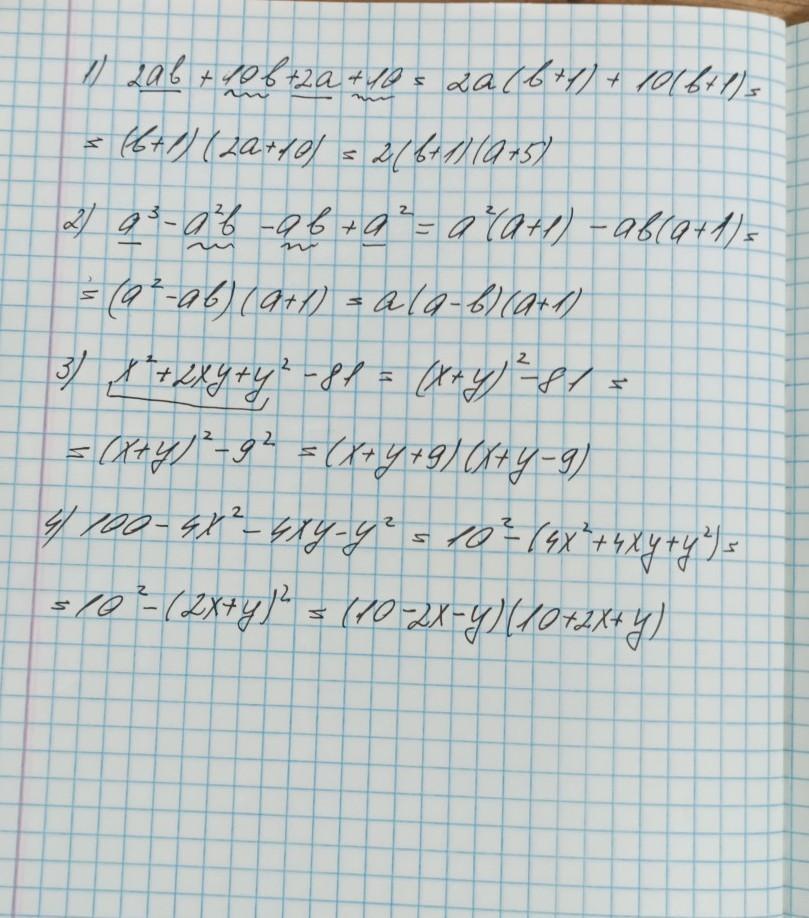 1) 2ab + 10b + 2a + 10 = 2a(b+1) + 10(b+1) =
= (b+1)(2a+10) = 2(b+1)(a+5)
2) a³ - a²b - ab + a² = a²(a+1) - ab(a+1) =
= (a² - ab)(a+1) = a(a-b)(a+1)
3) x² + 2xy + y² - 81 = (x+y)² - 81 =
= (x+y)² - 9² = (x+y+9)(x+y-9)
4) 100 - 4x² - 4xy - y² = 10² - (4x² + 4xy + y²) =
= 10² - (2x+y)² = (10-2x-y)(10+2x+y)